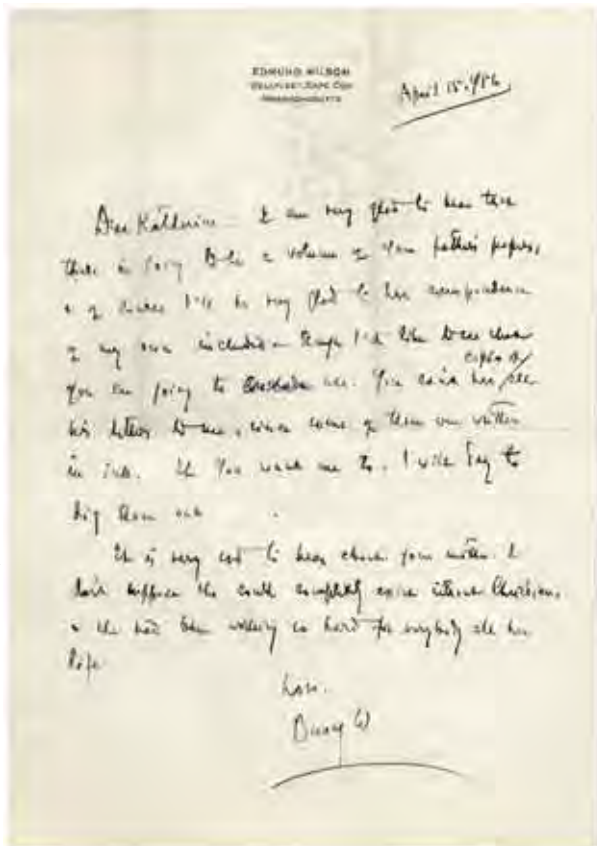 EDMUND WILSON
WELLFLEET, CAPE COD
MASSACHUSETTS
April 15, 1956
Dear Katharine – I am very glad to hear that
there is going to be a volume of your father's papers,
& of course I'll be very glad to have correspondence
of my own included – though I'd like to see what
you are going to use. You can't have copies of all
his letters to me, since some of them were written
in ink. If you want me to, I will try to
dig them out.
It is very sad to hear about your mother. I
don't suppose she could completely survive Christian,
& she had been working so hard for everybody all her
life.
Love,
Bunny W